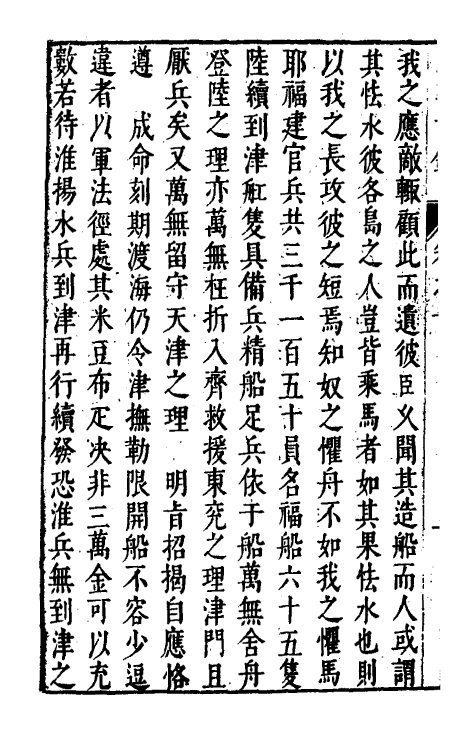 我之應敵輒顧此而遺彼臣又聞其造船而人或謂
其怯水彼各島之人豈皆乘馬者如其果怯水也則
以我之長攻彼之短焉知奴之懼舟不如我之懼馬
耶福建官兵共三千一百五十員名福船六十五隻
陸續到津舡隻具備兵精船足兵依于船萬無舍舟
登陸之理亦萬無枉折入齊救援東兖之理津門且
厭兵矣又萬無留守天津之理　明旨招揭自應恪
遵　成命刻期渡海仍令津撫勒限開船不容少逗
違者以軍法徑處其米豆布疋决非三萬金可以充
數若待淮揚水兵到津再行續發恐淮兵無到津之